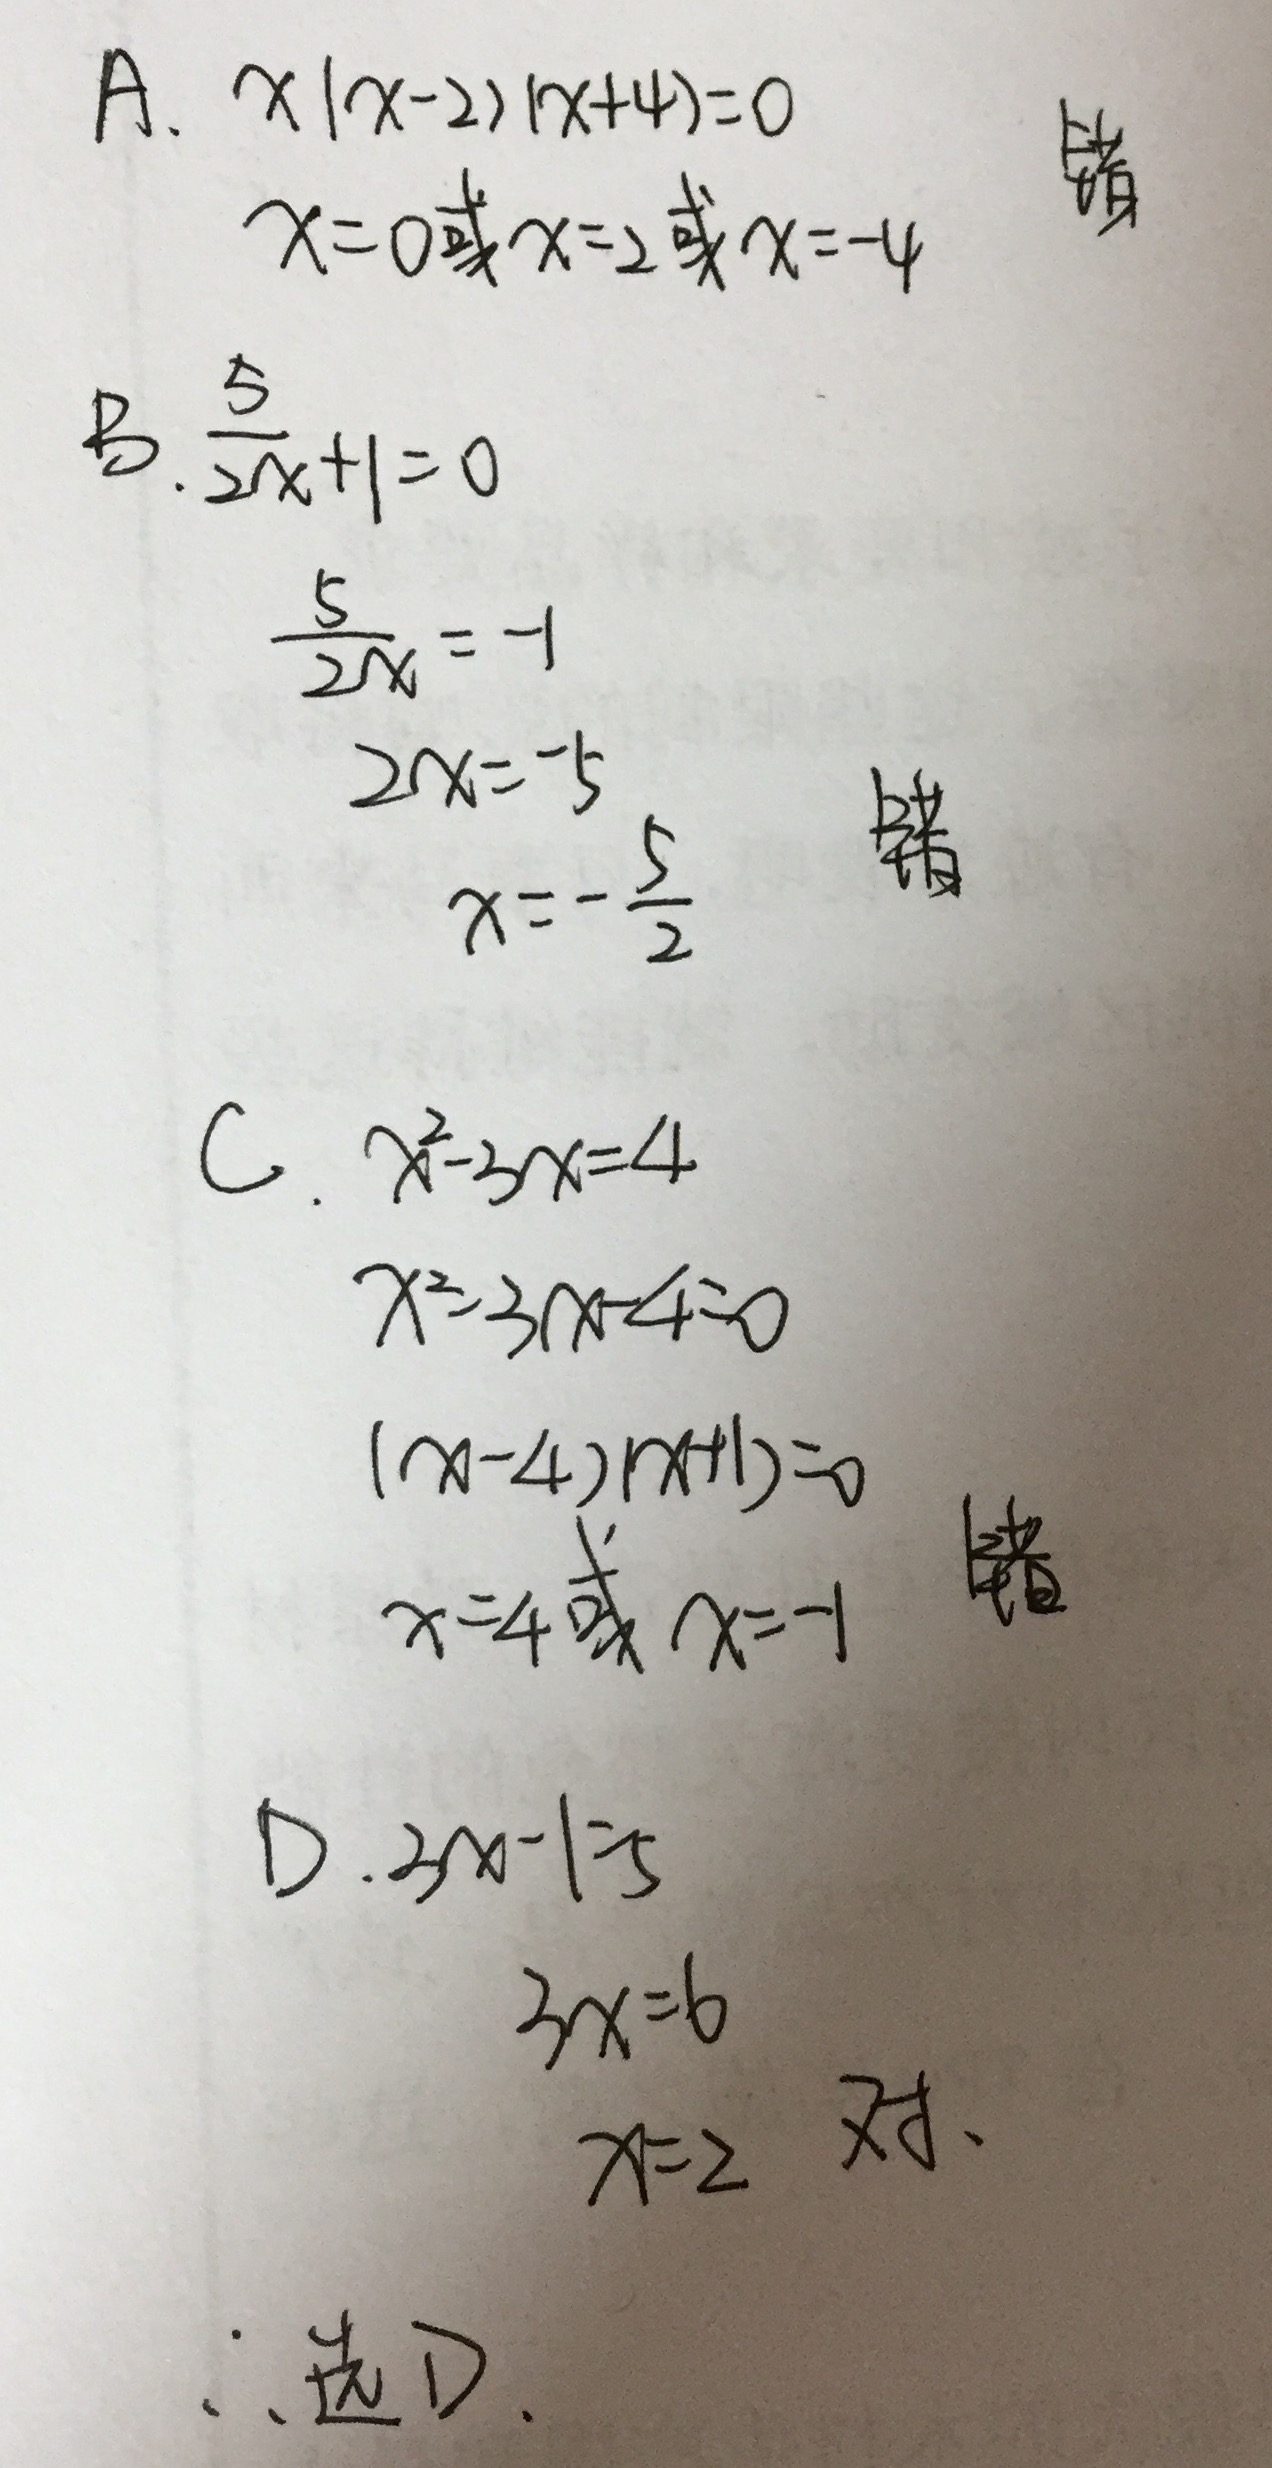 A. x(x-2)(x+4)=0
x=0或x=2或x=-4 错
B. 5/2x+1=0
5/2x=-1
2x=-5
x=-5/2 错
C. x²-3x=4
x²-3x-4=0
(x-4)(x+1)=0
x=4或x=-1 错
D. 3x-1=5
3x=6
x=2 对、
∴选D.